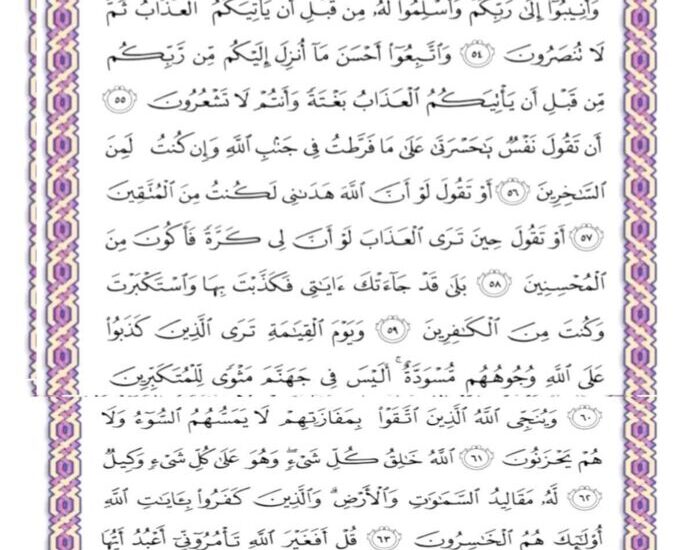 وَأَنِيبُوٓا۟ إِلَىٰ رَبِّكُمْ وَأَسْلِمُوا۟ لَهُۥ مِن قَبْلِ أَن يَأْتِيَكُمُ الْعَذَابُ ثُمَّ
لَا تُنصَرُونَ ﴿٥٤﴾ وَاتَّبِعُوٓا۟ أَحْسَنَ مَآ أُنزِلَ إِلَيْكُم مِّن رَّبِّكُم
مِّن قَبْلِ أَن يَأْتِيَكُمُ الْعَذَابُ بَغْتَةً وَأَنتُمْ لَا تَشْعُرُونَ ﴿٥٥﴾
أَن تَقُولَ نَفْسٌ يَٰحَسْرَتَىٰ عَلَىٰ مَا فَرَّطتُ فِى جَنۢبِ اللَّهِ وَإِن كُنتُ لَمِنَ
السَّٰخِرِينَ ﴿٥٦﴾ أَوْ تَقُولَ لَوْ أَنَّ اللَّهَ هَدَىٰنِى لَكُنتُ مِنَ الْمُتَّقِينَ
﴿٥٧﴾ أَوْ تَقُولَ حِينَ تَرَى الْعَذَابَ لَوْ أَنَّ لِى كَرَّةً فَأَكُونَ مِنَ
الْمُحْسِنِينَ ﴿٥٨﴾ بَلَىٰ قَدْ جَآءَتْكَ ءَايَٰتِى فَكَذَّبْتَ بِهَا وَاسْتَكْبَرْتَ
وَكُنتَ مِنَ الْكَٰفِرِينَ ﴿٥٩﴾ وَيَوْمَ الْقِيَٰمَةِ تَرَى الَّذِينَ كَذَبُوا۟
عَلَى اللَّهِ وُجُوهُهُم مُّسْوَدَّةٌ ۚ أَلَيْسَ فِى جَهَنَّمَ مَثْوًى لِّلْمُتَكَبِّرِينَ
﴿٦٠﴾ وَيُنَجِّى اللَّهُ الَّذِينَ اتَّقَوْا۟ بِمَفَازَتِهِمْ لَا يَمَسُّهُمُ السُّوٓءُ وَلَا
هُمْ يَحْزَنُونَ ﴿٦١﴾ اللَّهُ خَٰلِقُ كُلِّ شَىْءٍ ۖ وَهُوَ عَلَىٰ كُلِّ شَىْءٍ وَكِيلٌ
﴿٦٢﴾ لَّهُۥ مَقَالِيدُ السَّمَٰوَٰتِ وَالْأَرْضِ ۗ وَالَّذِينَ كَفَرُوا۟ بِـَٔايَٰتِ اللَّهِ
أُو۟لَٰٓئِكَ هُمُ الْخَٰسِرُونَ ﴿٦٣﴾ قُلْ أَفَغَيْرَ اللَّهِ تَأْمُرُوٓنِّىٓ أَعْبُدُ أَيُّهَا